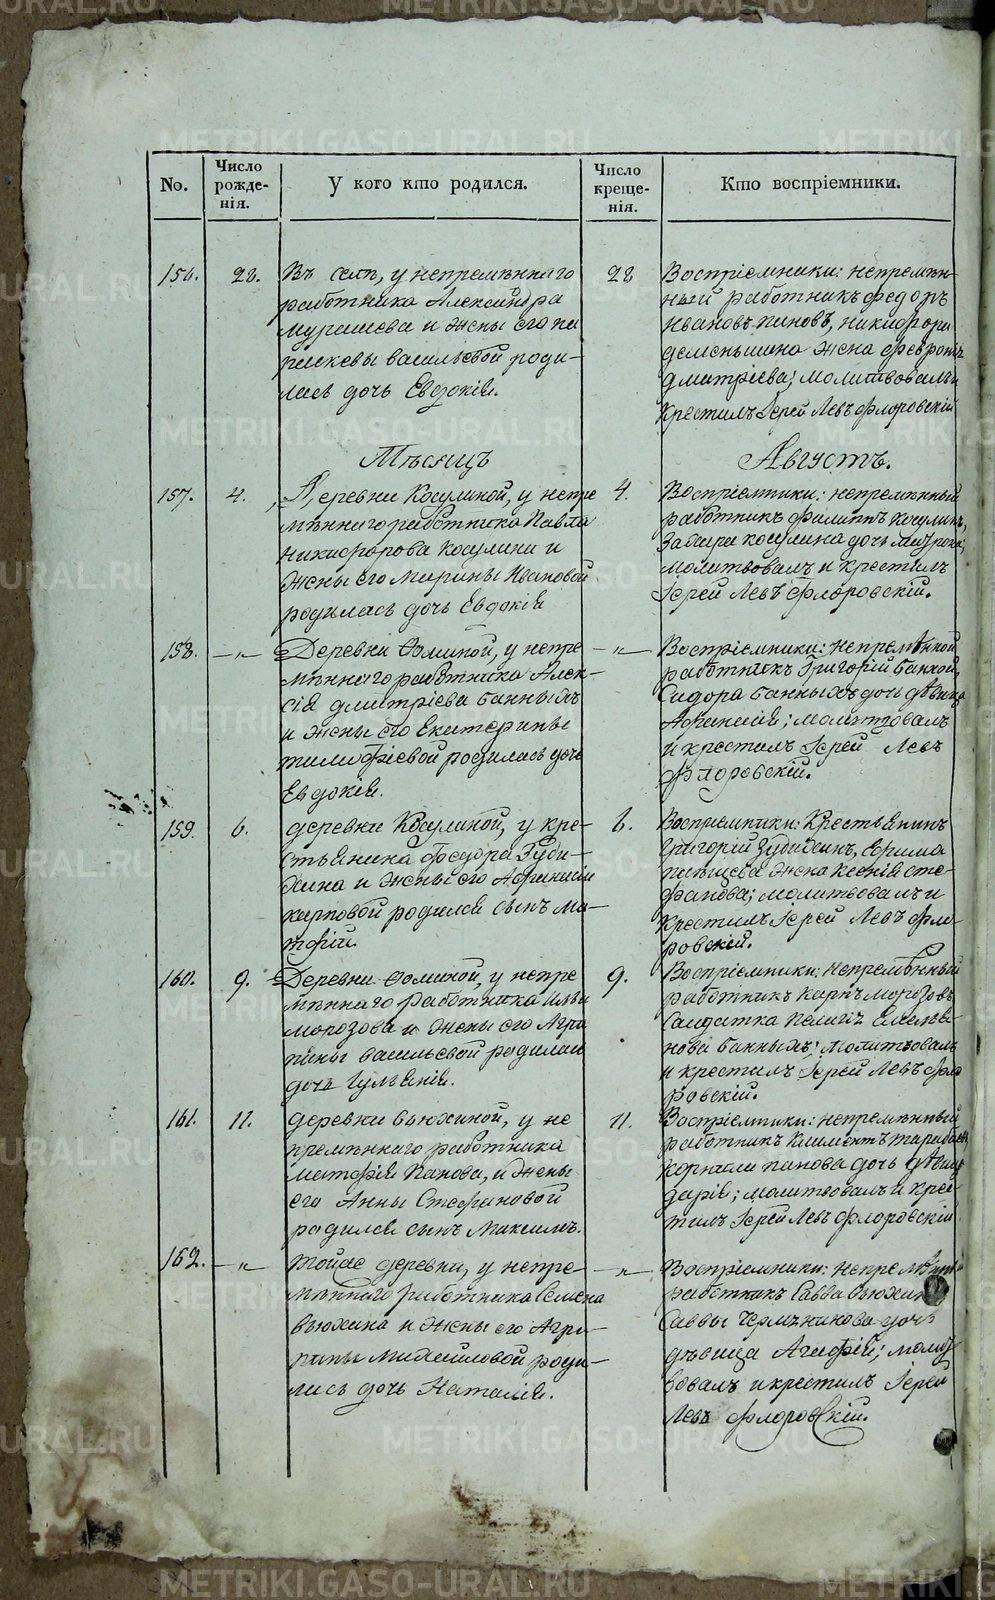 METRIKI.GASO-URAL.RU
No.
Число рожденія.
У кого кто родился.
Число крещенія.
Кто воспріемники.
156.
28.
Въ селѣ, у непремѣннаго
работника Александра
Мурашева и жены его Па
раскевы Васильевой роди-
лась дочь Евдокія.
28
Воспріемники: непремѣн-
ный работникъ Федоръ
Ивановъ Пановъ, Никифора
жена Февронія
Дмитріева; молитвовалъ и
крестилъ Іерей Левъ Флоровскій
Мѣсяцъ
Августъ.
157.
4.
Деревни Косулиной, у непре
мѣннаго работника Павла
Никифорова Косулина и
жены его Марины Ивановой
родилась дочь Евдокія
4.
Воспріемники: непремѣнный
работникъ Филиппъ Косулинъ,
Косулина дочь
молитвовалъ и крестилъ
Іерей Левъ Флоровскій.
158.
—„—
Деревни Фоминой, у непре
мѣннаго работника Алек-
сія Дмитріева Банныхъ
и жены его Екатерины
Тимофіевой родилась дочь
Евдокія.
—„—
Воспріемники: непремѣнной
работникъ Григорій Банной,
Сидора Банныхъ дочь дѣвица
Афанасія; молитвовалъ
и крестилъ Іерей Левъ
Флоровскій.
159.
6.
деревни Косулиной, у кре-
стьянина Федора Зуби-
хина и жены его Афанасіи
Карповой родился сынъ Ма-
тфій.
6.
Воспріемники: Крестьянинъ
Григорій Ефима
жена Ксенія Сте-
фанова; молитвовалъ и
крестилъ Іерей Левъ Фло-
ровскій.
160.
9.
Деревни Фоминой, у непре
мѣннаго работника Ильи
Морозова и жены его Агри
пины Васильевой родилась
дочь Гульянія.
9.
Воспріемники: непремѣнный
работникъ Карпъ Морозовъ
Солдатка Емелья-
нова Банныхъ; молитвовалъ
и крестилъ Іерей Левъ Фло
ровскій.
161.
11.
деревни Вьюхиной, у не
премѣннаго работника
Матфія Панова, и жены
его Анны Стефановой
родился сынъ Максимъ.
11.
Воспріемники: непремѣнный
работникъ Климентъ
Корнила Панова дочь дѣвица
Дарія; молитвовалъ и крес-
тилъ Іерей Левъ Флоровскій
162.
—„—
тойже деревни, у непре-
мѣннаго работника Семена
Вьюхина и жены его Агри-
пины Михайловой роди-
лась дочь Наталія.
—„—
Воспріемники: непремѣнный
работникъ Савва Вьюхинъ
Саввы дочь
дѣвица Агафія; молит
вовалъ и крестилъ Іерей
Левъ Флоровскій.